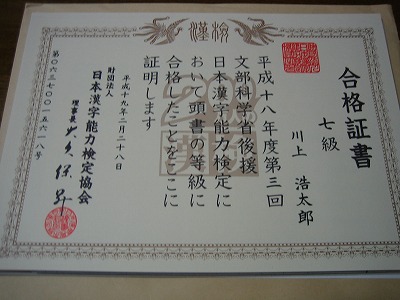 漢検
合格証書
七級
川上 浩太郎
平成十八年度第三回
文部科学省後援
日本漢字能力検定に
おいて頭書の等級に
合格したことをここに
証明します
平成十九年二月二十八日
財団法人
日本漢字能力検定協会
理事長